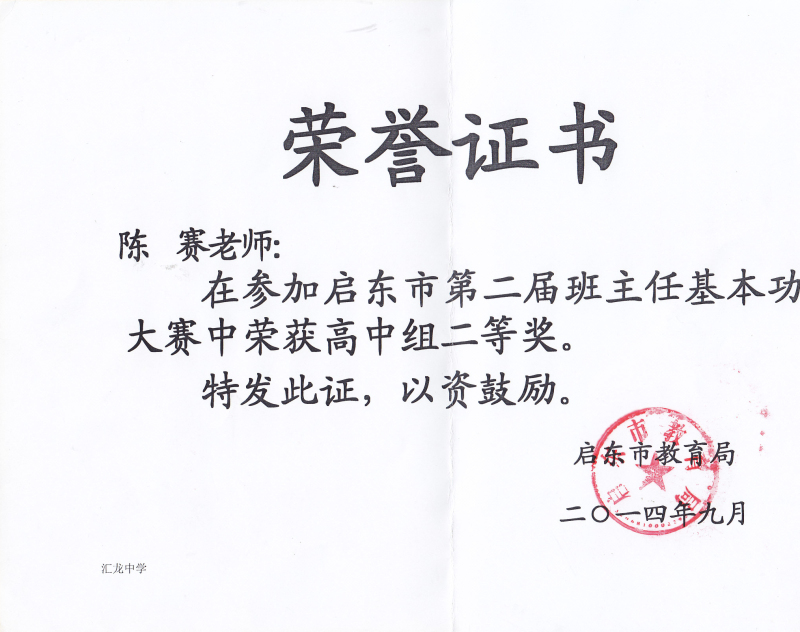 荣誉证书
陈 赛老师:
在参加启东市第二届班主任基本功
大赛中荣获高中组二等奖。
特发此证，以资鼓励。
启东市教育局
启东市教育局
二〇一四年九月
汇龙中学